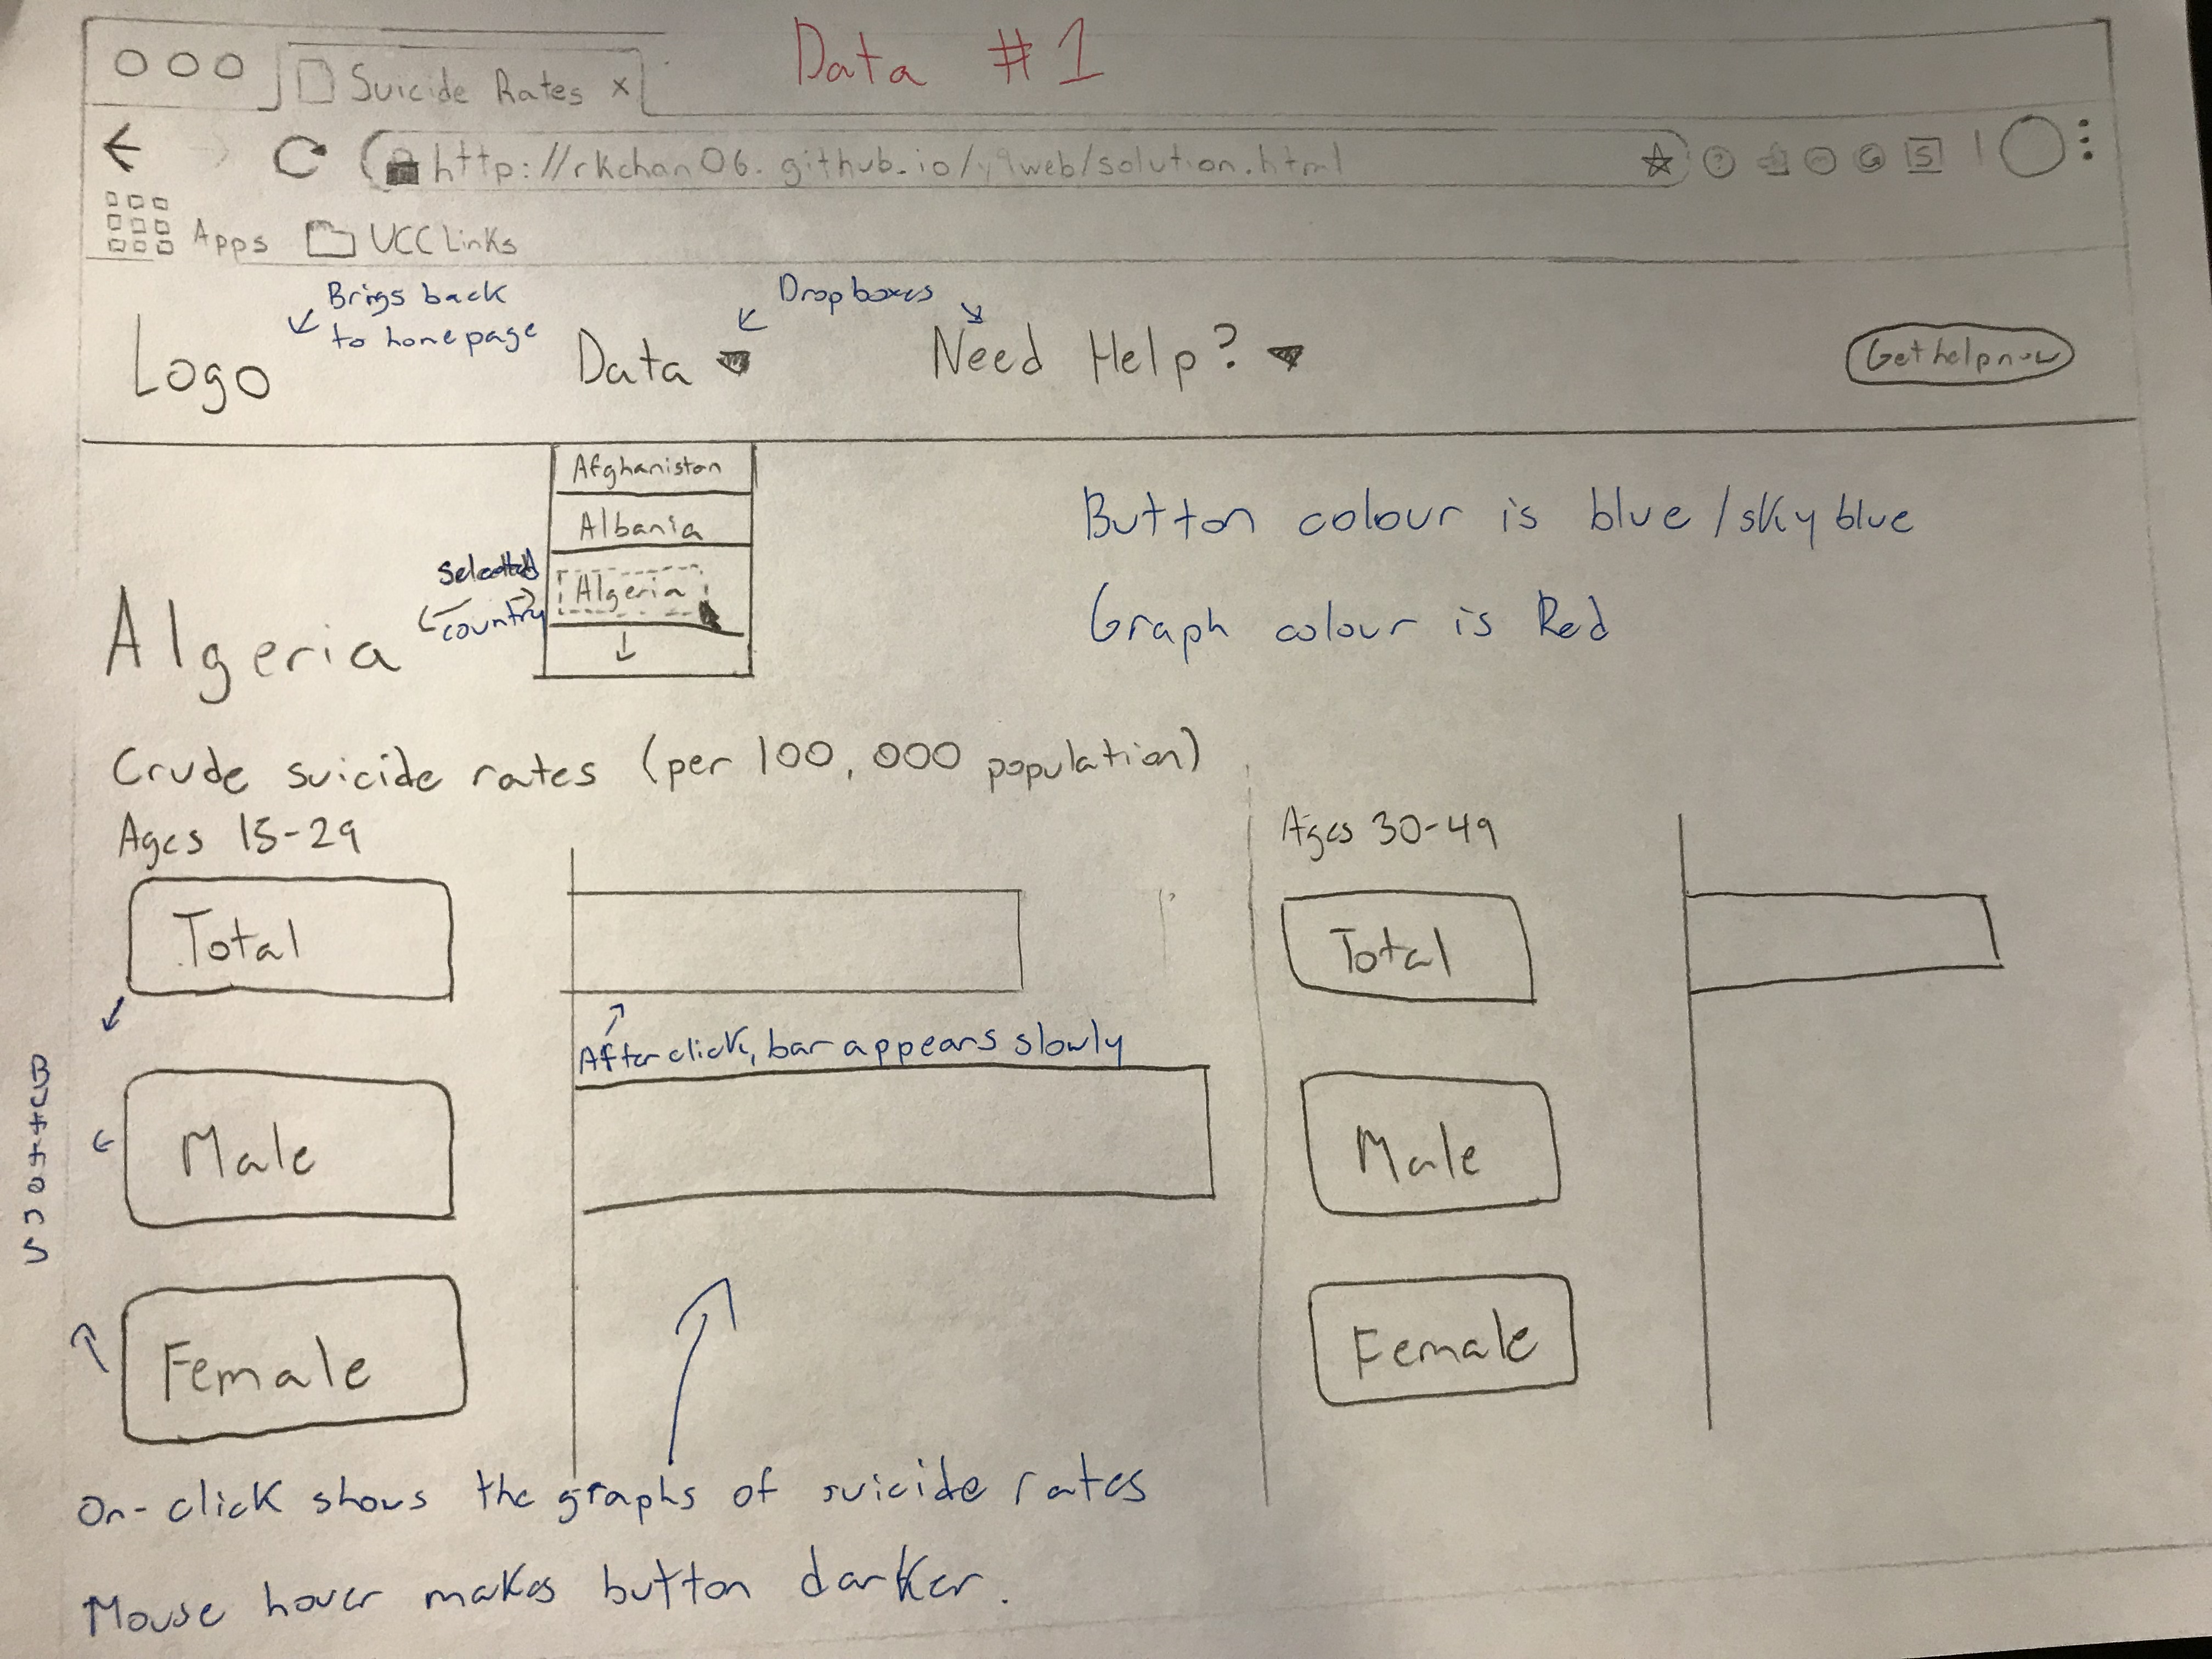 Data #1
Suicide Rates x
http://rkchan06.github.io/y9web/solution.html
Apps UCC Links
Brings back
to homepage
Dropboxes
Logo Data Need Help? Get help now
Afghanistan
Albania
Algeria
selected
country
Button colour is blue/sky blue
Graph colour is Red
Algeria
Crude suicide rates (per 100,000 population)
Ages 15-29
Ages 30-49
Total
Total
After click, bar appears slowly
Male
Male
Female
Female
Buttons
On-click shows the graphs of suicide rates
Mouse hover makes button darker.